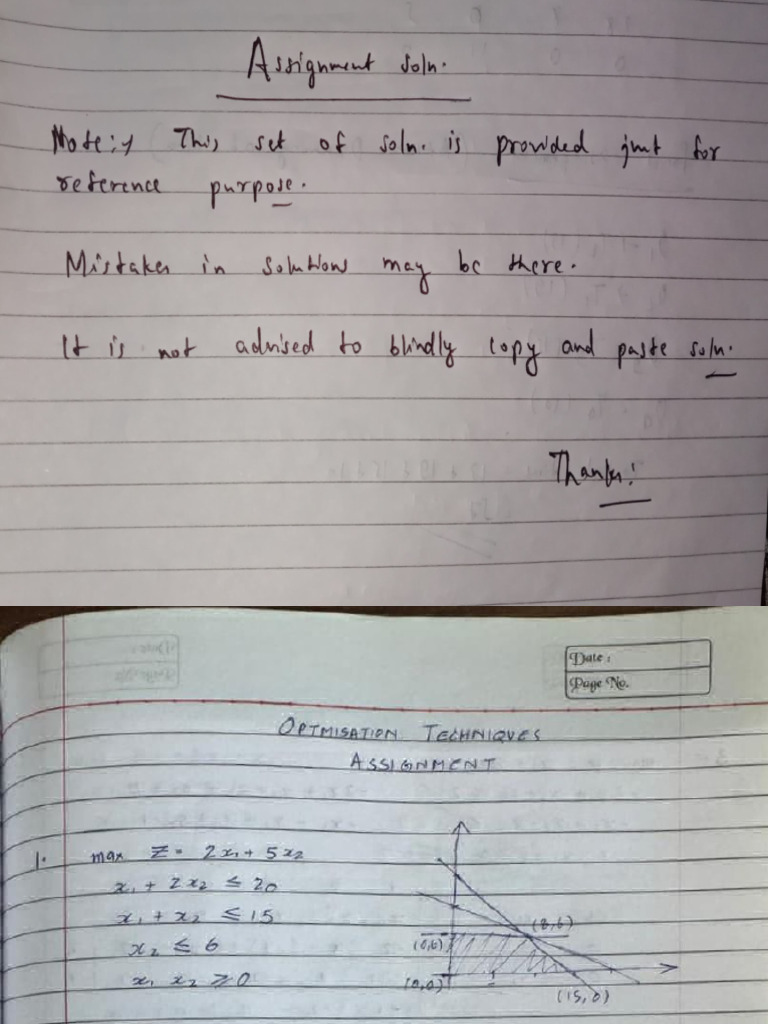 Assignment soln.
Note:→ This set of soln. is provided just for
reference purpose.
Mistakes in solutions may be there.
It is not advised to blindly copy and paste soln.
Thanks!
Date :
Page No.
OPTMISATION TECHNIQUES
ASSIGNMENT
1. max Z = 2x₁ + 5x₂
x₁ + 2x₂ ≤ 20
x₁ + x₂ ≤ 15
x₂ ≤ 6
x₁ x₂ ≥ 0
(8,6)
(0,6)
(0,0)
(15,0)